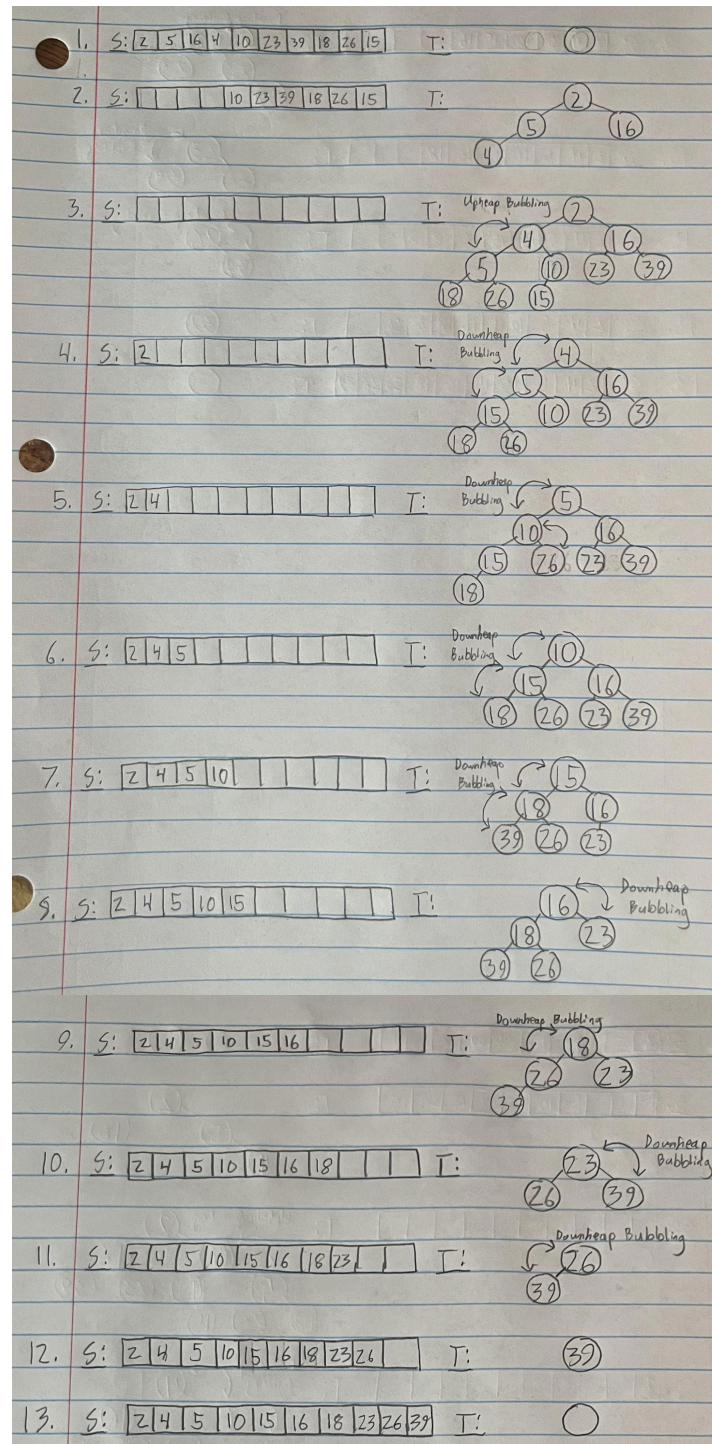 1. S: 2 5 16 4 10 23 39 18 26 15 T:
2. S: 10 23 39 18 26 15 T: 2
5 16
4
3. S: T: Upheap Bubbling 2
4 16
5 10 23 39
18 26 15
4. S: 2 T: Downheap Bubbling 4
5 16
15 10 23 39
18 26
5. S: 2 4 T: Downheap Bubbling 5
10 16
15 26 23 39
18
6. S: 2 4 5 T: Downheap Bubbling 10
15 16
18 26 23 39
7. S: 2 4 5 10 T: Downheap Bubbling 15
18 16
39 26 23
8. S: 2 4 5 10 15 T: 16 Downheap Bubbling
18 23
39 26
9. S: 2 4 5 10 15 16 T: Downheap Bubbling 18
26 23
39
10. S: 2 4 5 10 15 16 18 T: 23 Downheap Bubbling
26 39
11. S: 2 4 5 10 15 16 18 23 T: Downheap Bubbling 26
39
12. S: 2 4 5 10 15 16 18 23 26 T: 39
13. S: 2 4 5 10 15 16 18 23 26 39 T: